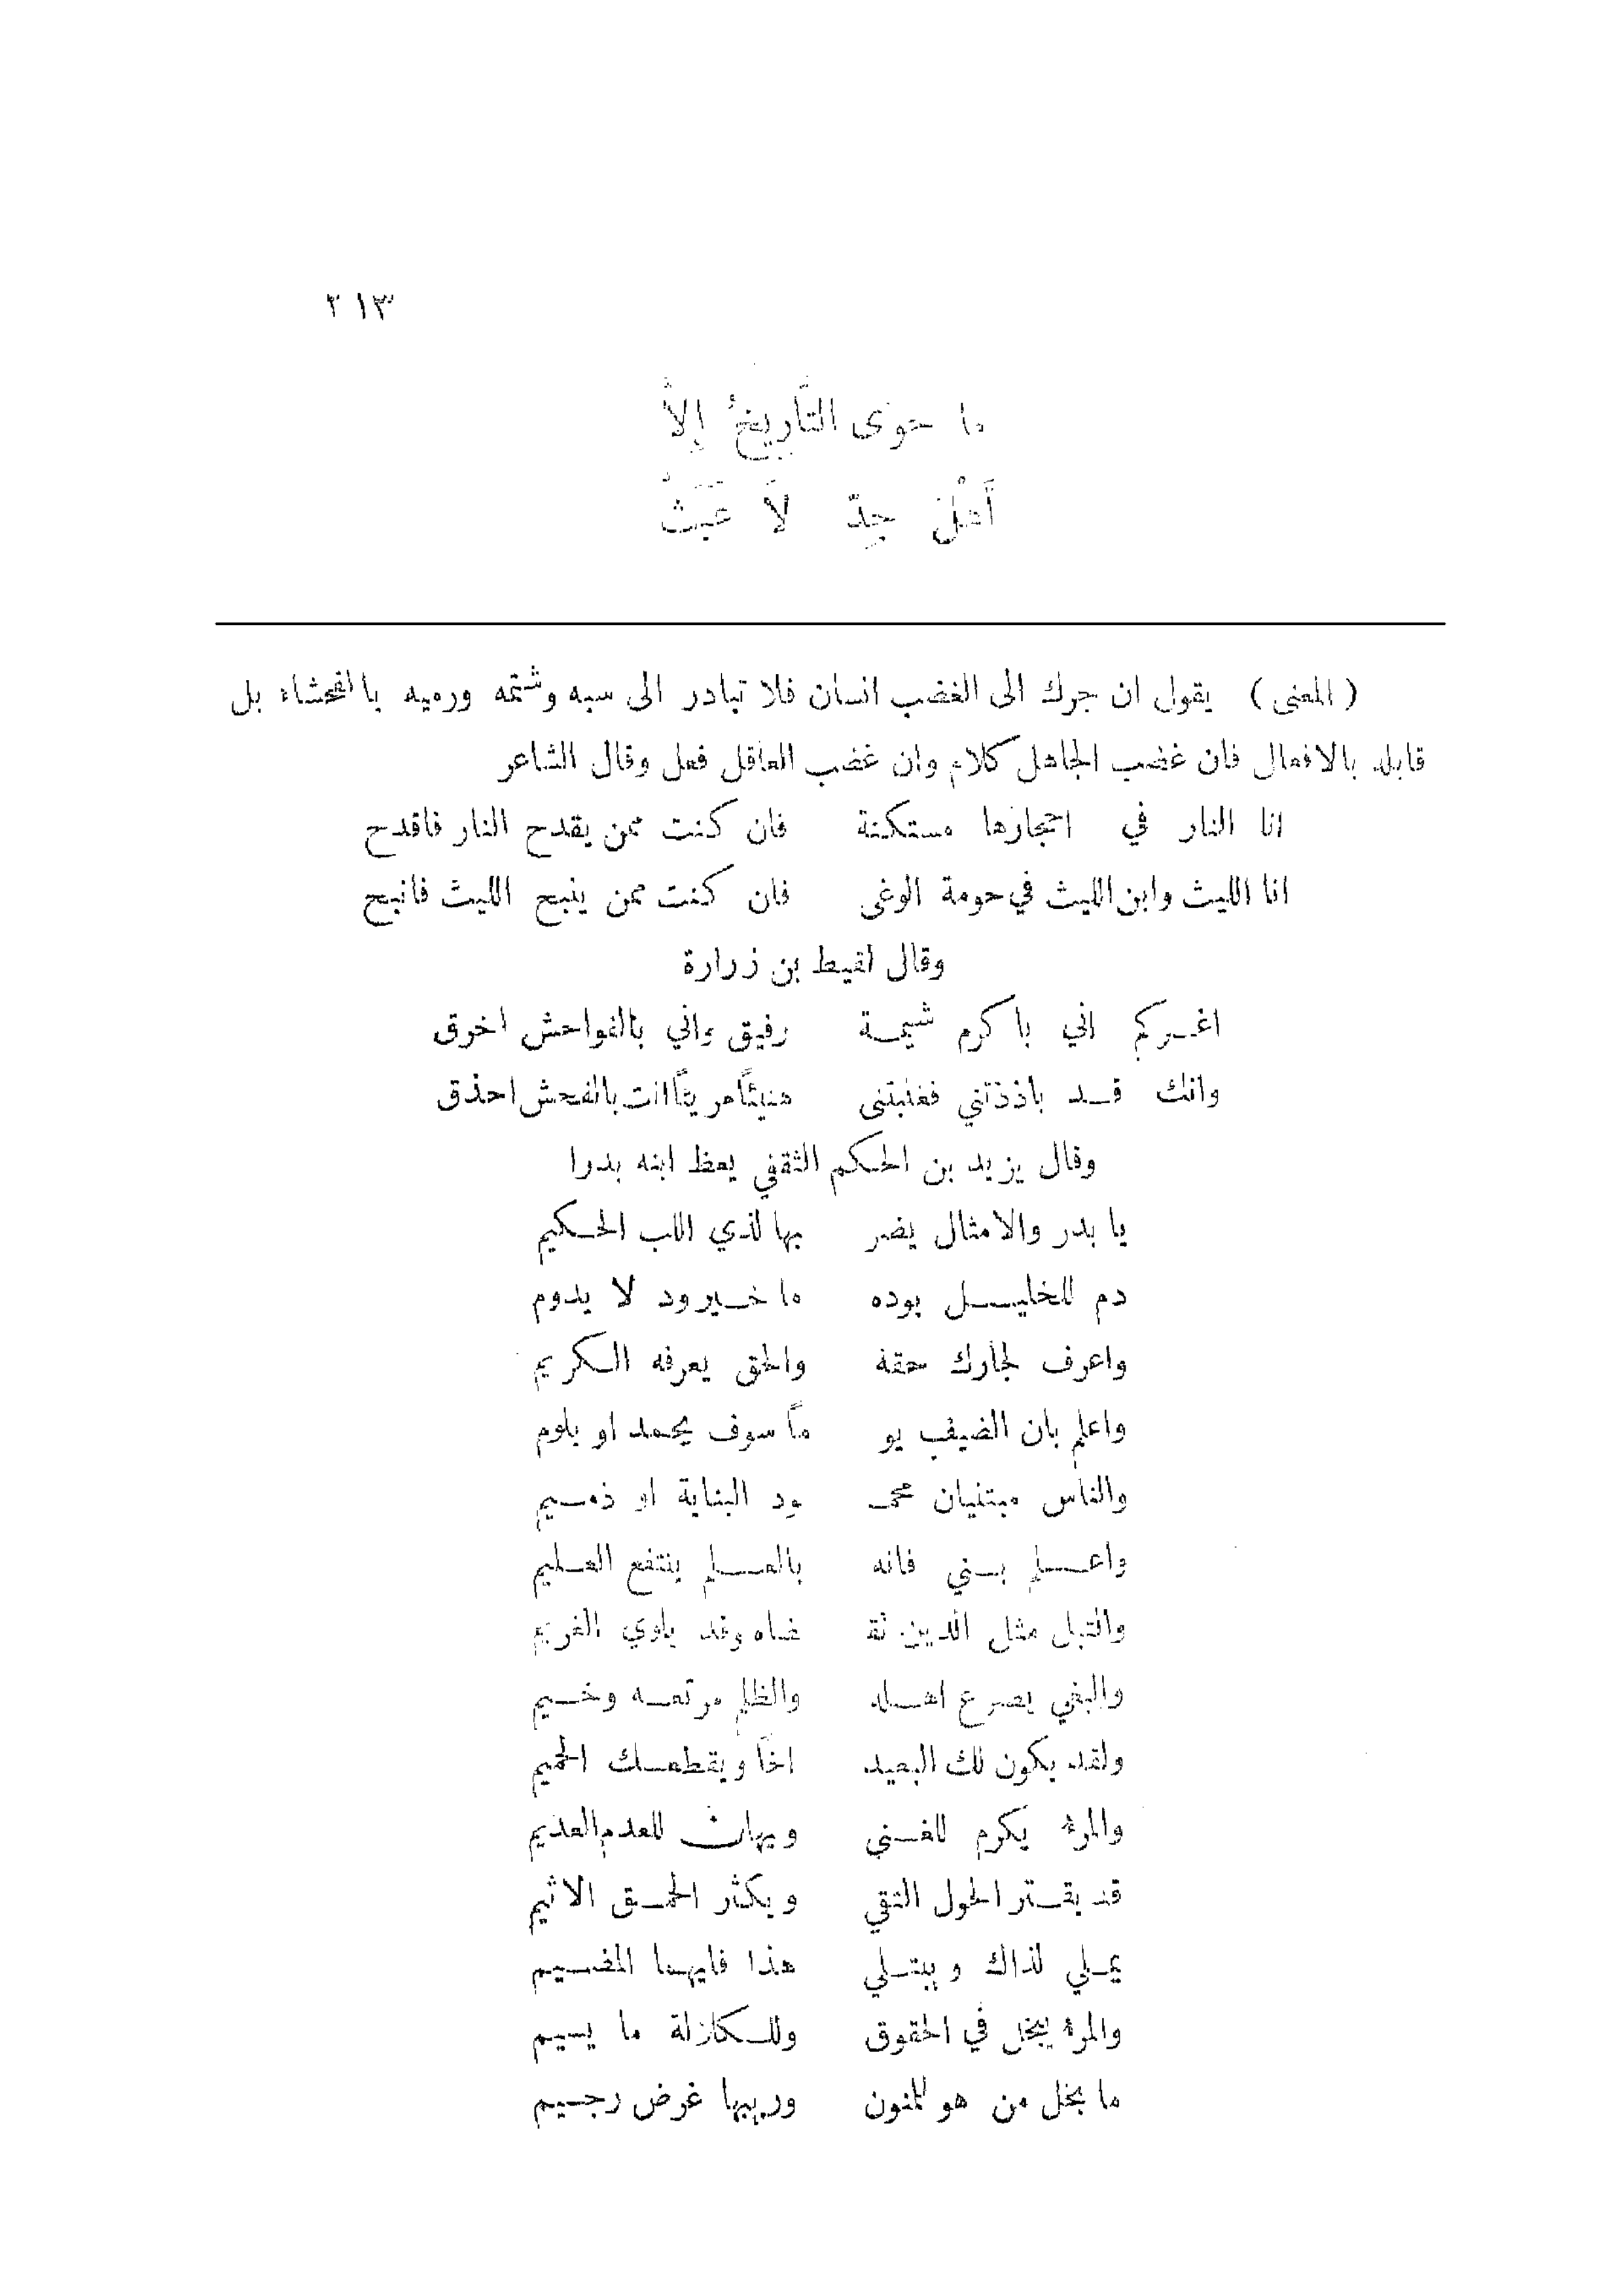 ٢١٣
ما حوَى التَّارِيخُ إِلاَّ
أَهْلَ جِدّ لَا عَبَثْ
( المعنى ) يقول ان جرك الى الغضب انسان فلا تبادر الى سبه وشتمه ورميه بالفحشاء بل
قابله بالافعال فان غضب الجاهل كلام وان غضب العاقل فعل وقال الشاعر
انا النار في احجارها مستكنة فان كنت ممن يقدح النار فاقدح
انا الليث وابن الليث في حومة الوغى فان كنت ممن ينبح الليث فانبح
وقال لقيط بن زرارة
اغــركم اني با كرم شيمــة رفيق واني بالفواحش اخرق
وانك قــد باذذتني فغلبتنى هنيئًا مريئًا انت بالفحش احذق
وقال يزيد بن الحكم الثقفي يعظ ابنه بدرا
يا بدر والامثال يضر بها لذي اللب الحــكيم
دم للخليــل بوده ما خــير ود لا يدوم
واعرف لجارك حقه والحق يعرفه الــكريم
واعلم بان الضيف يو مًا سوف يحمد او يلوم
والناس مبتنيان محمـ ـود البناية او ذمــيم
واعــلم بــني فانه بالعــلم ينتفع العــليم
والتبل مثل الدين تقـ ضاه وقد يلوي الغريم
والبغي يصرع اهــله والظلم مرتعــه وخــيم
ولقد يكون لك البعيد اخًا ويقطعــك الحميم
والمرء يكرم للغــنى ويهان للعدم العديم
قد يقــتر الحول التقي ويكثر الحمــق الاثيم
يمــلي لذاك ويبتــلي هذا فايهما المضــيم
والمرء يبخل في الحقوق وللــكلالة ما يسيم
ما بخل من هو للمنون وريبها غرض رجــيم